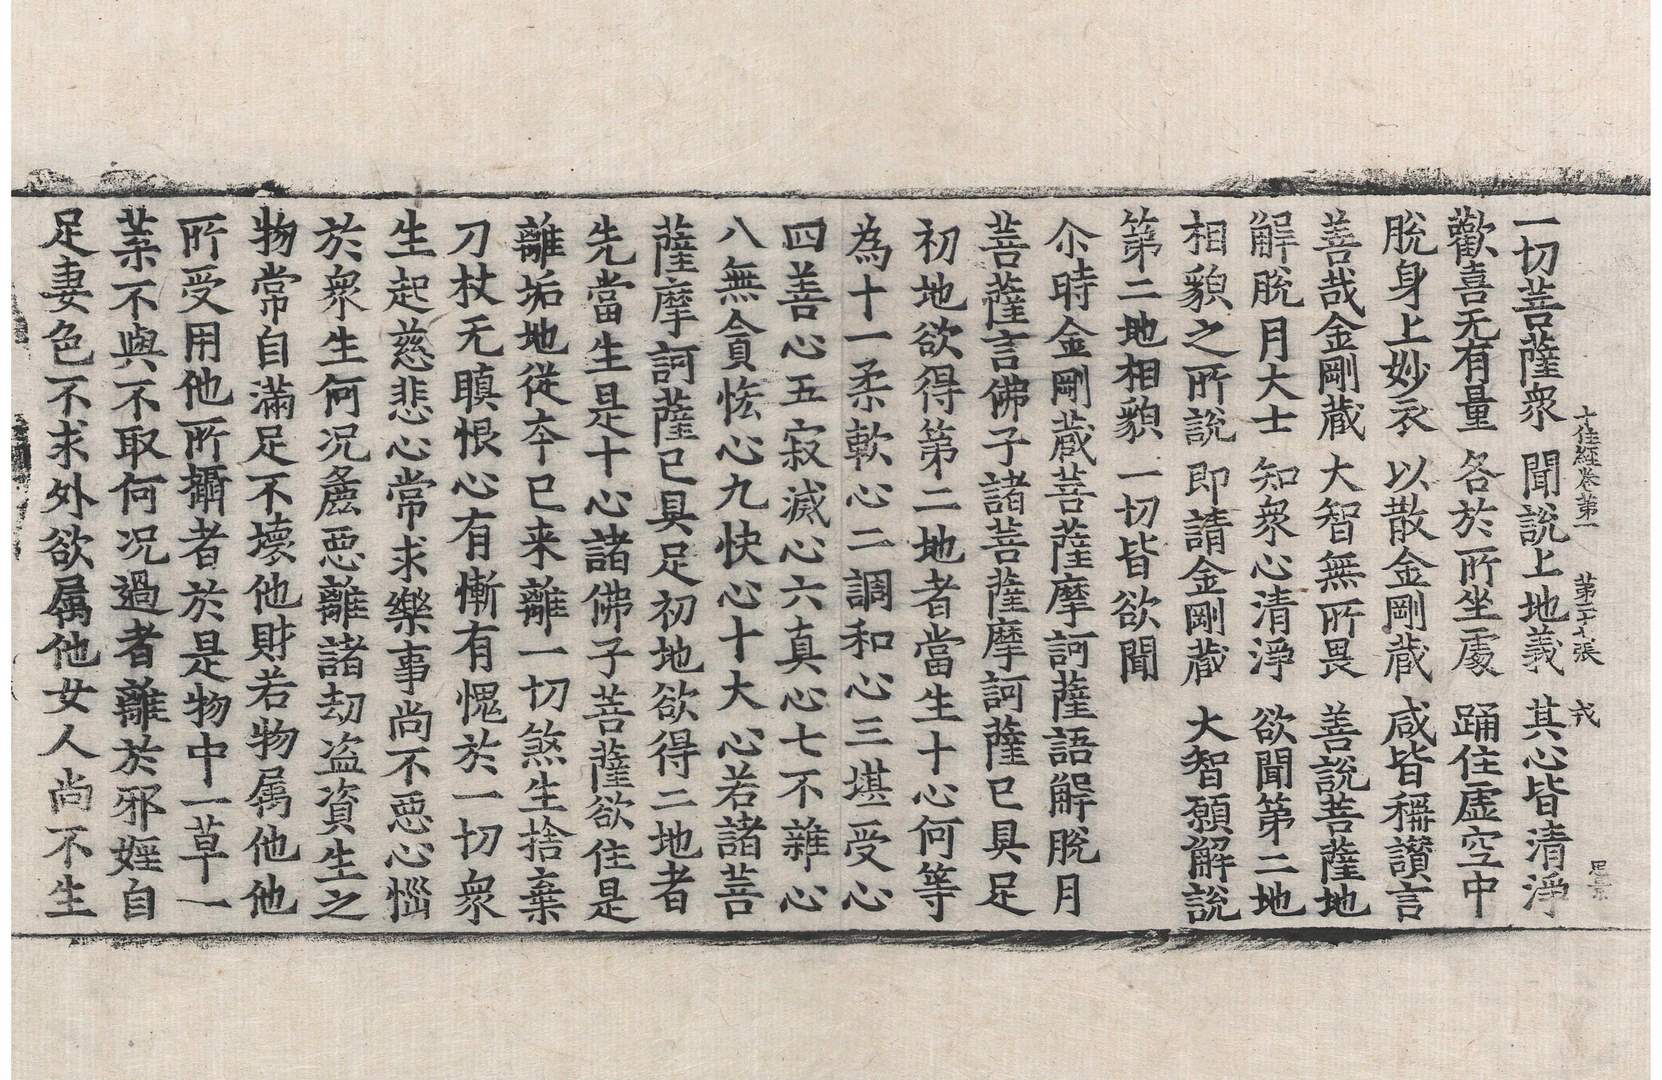 十住經卷第一 第二十七張 戎
一切菩薩衆 聞說上地義 其心皆清淨
歡喜无有量 各於所坐處 踊住虛空中
脫身上妙衣 以散金剛藏 咸皆稱讃言
善哉金剛藏 大智無所畏 善說菩薩地
解脫月大士 知衆心清淨 欲聞第二地
相貌之所說 即請金剛藏 大智願解說
第二地相貌 一切皆欲聞
尒時金剛藏菩薩摩訶薩語解脫月
菩薩言佛子諸菩薩摩訶薩已具足
初地欲得第二地者當生十心何等
為十一柔軟心二調和心三堪受心
四善心五寂滅心六真心七不雜心
八無貪悋心九快心十大心若諸菩
薩摩訶薩已具足初地欲得二地者
先當生是十心諸佛子菩薩欲住是
離垢地從夲已来離一切煞生捨棄
刀杖无瞋恨心有慚有愧於一切衆
生起慈悲心常求樂事尚不惡心惱
於衆生何况麁惡離諸劫盗資生之
物常自滿足不壞他財若物属他他
所受用他所攝者於是物中一草一
葉不與不取何况過者離於邪婬自
足妻色不求外欲属他女人尚不生